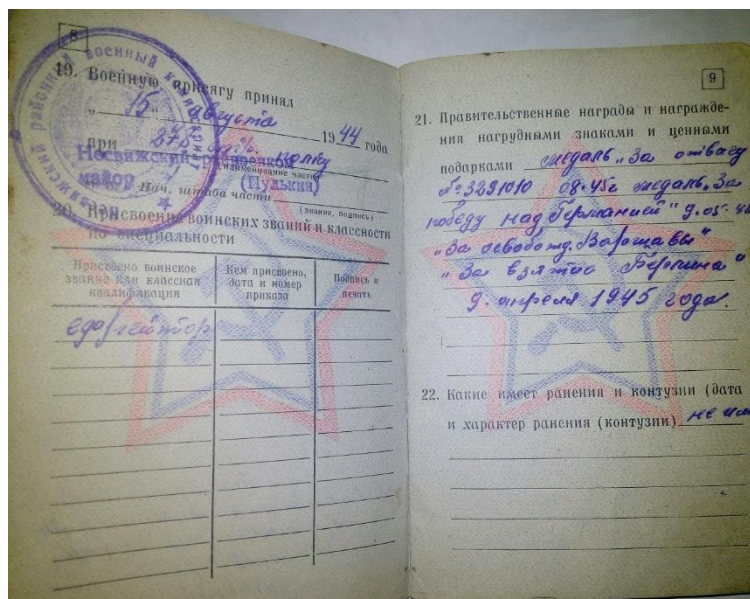 8
19. Военную присягу принял
„15“ августа 1944 года
при
наименование части
Несвижский районный
майор (Пулькин)
Нач. штаба части
(звание, подпись)
20. Присвоение воинских званий и классности
по специальности
Присвоено воинское звание или классная квалификация
Кем присвоено, дата и номер приказа
Подпись и печать
ефрейтор
9
21. Правительственные награды и награжде-
ния нагрудными знаками и ценными
подарками медаль „За отвагу
№ 3291010 медаль „За
победу над Германией“ 9.05.45
„За освобожд. Варшавы“
„За взятие Берлина“
9. апреля 1945 года.
22. Какие имеет ранения и контузии (дата
и характер ранения (контузии) не